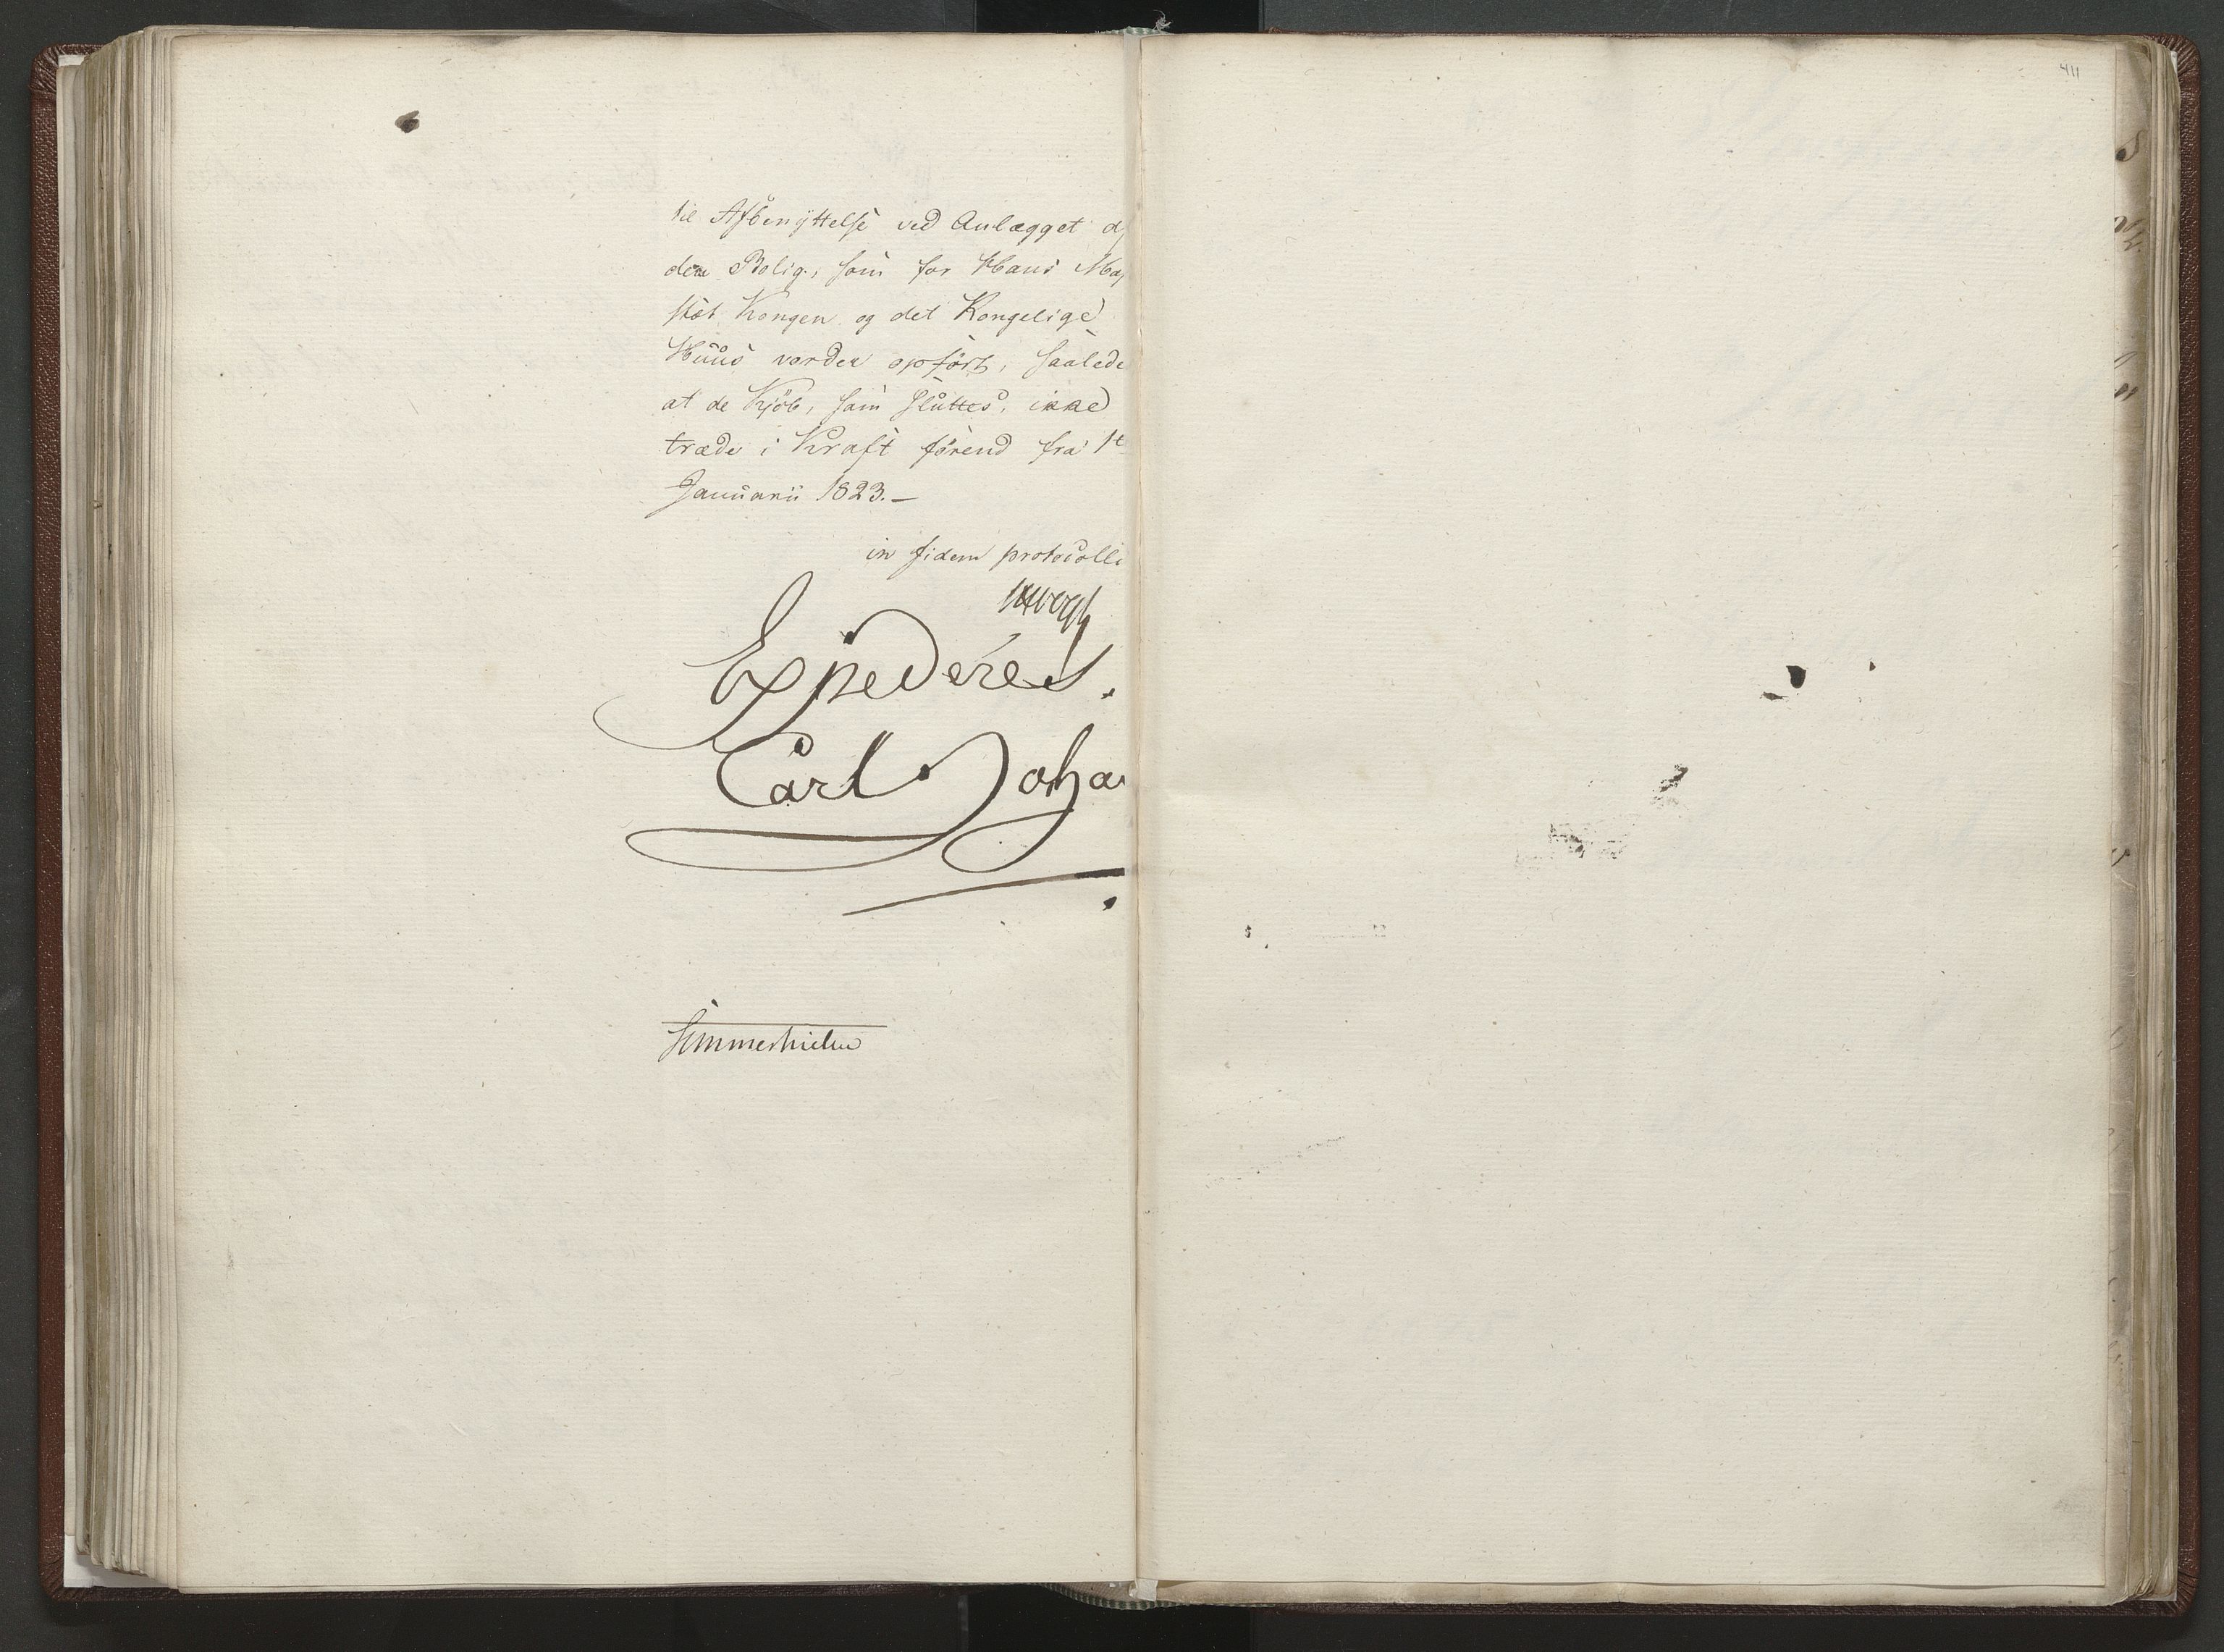 411
til Afbenyttelse ved Anlægget af
den Bolig, som for Hans Maj
stæt Kongen og det Kongelige
Huus vorder opført, saalede
at de Kjöb, som sluttes, ikke
træde i Kraft förend fra 1t
Januarii 1823.–
in fidem protocolli
Expederes.
Carl Joha